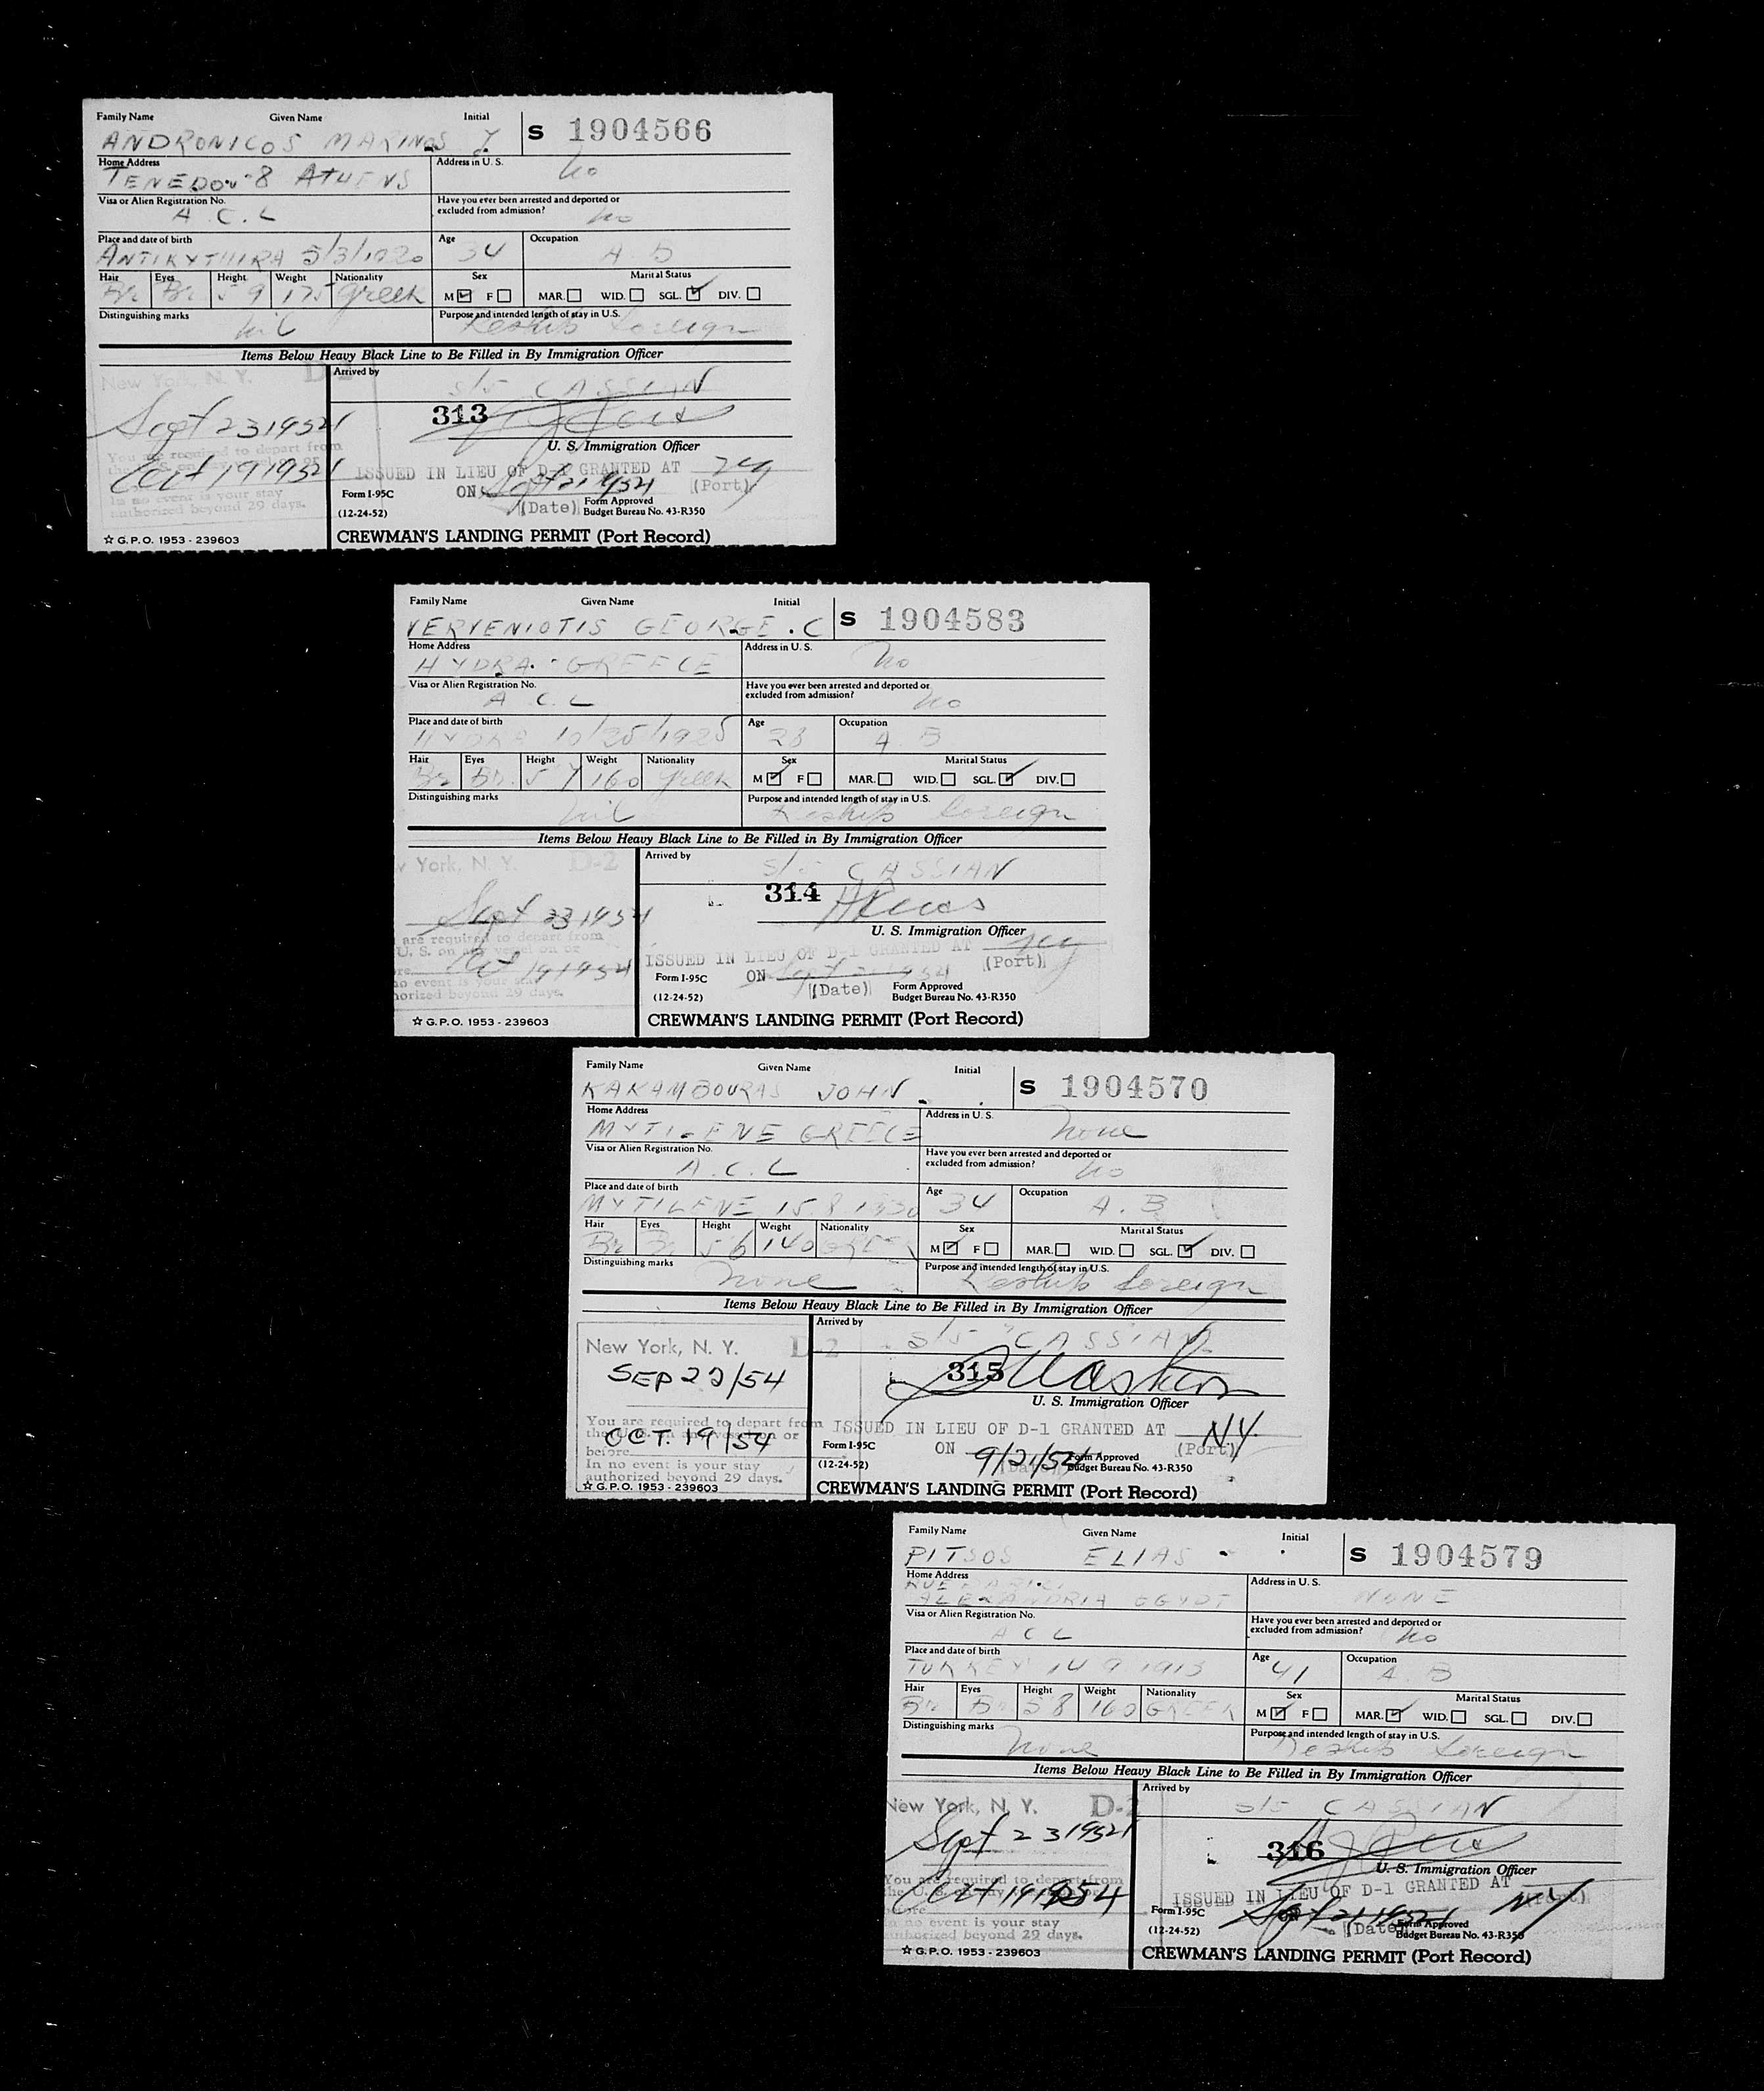 Family Name Given Name Initial
S 1904566
ANDRONICOS MARINOS
Home Address Address in U. S.
TENEDOU 8 ATHENS no
Visa or Alien Registration No. Have you ever been arrested and deported or excluded from admission?
A. C. L no
Place and date of birth Age Occupation
ANTIKYTHIRA 5/3/1920 34 A B
Hair Eyes Height Weight Nationality Sex Marital Status
Br Br 5 9 175 Greek M F MAR. WID. SGL. DIV.
Distinguishing marks Purpose and intended length of stay in U.S.
nil Reship foreign
Items Below Heavy Black Line to Be Filled in By Immigration Officer
New York, N. Y. D-2
Arrived by
s/s CASSIAN
Sept 23 1954
313
U. S. Immigration Officer
You are required to depart from
the U. S. on or
Oct 19 1954
In no event is your stay
authorized beyond 29 days.
ISSUED IN LIEU OF D-1 GRANTED AT NY
(Port)
ON Sept 21 1954
(Date)
Form I-95C
(12-24-52)
Form Approved
Budget Bureau No. 43-R350
☆ G.P.O. 1953 - 239603
CREWMAN'S LANDING PERMIT (Port Record)
Family Name Given Name Initial
S 1904583
VERVENIOTIS GEORGE . C
Home Address Address in U. S.
HYDRA - GREECE no
Visa or Alien Registration No. Have you ever been arrested and deported or excluded from admission?
A. C. L no
Place and date of birth Age Occupation
HYDRA 10/25/1925 28 A. B
Hair Eyes Height Weight Nationality Sex Marital Status
Br Br. 5 7 160 Greek M F MAR. WID. SGL. DIV.
Distinguishing marks Purpose and intended length of stay in U.S.
nil Reship foreign
Items Below Heavy Black Line to Be Filled in By Immigration Officer
York, N. Y. D-2
Arrived by
s/s CASSIAN
314
Sept 23 1954
U. S. Immigration Officer
are required to depart from
U. S. on any vessel on or
Oct 19 1954
no event is your stay
horized beyond 29 days.
ISSUED IN LIEU OF D-1 GRANTED AT NY
(Port)
ON Sept 21 1954
(Date)
Form I-95C
(12-24-52)
Form Approved
Budget Bureau No. 43-R350
☆ G.P.O. 1953 - 239603
CREWMAN'S LANDING PERMIT (Port Record)
Family Name Given Name Initial
S 1904570
KAKAMBOURAS JOHN
Home Address Address in U. S.
MYTILENE GREECE none
Visa or Alien Registration No. Have you ever been arrested and deported or excluded from admission?
A. C. L no
Place and date of birth Age Occupation
MYTILENE 15 8 1930 34 A. B
Hair Eyes Height Weight Nationality Sex Marital Status
Br Br 5 6 140 GREEK M F MAR. WID. SGL. DIV.
Distinguishing marks Purpose and intended length of stay in U.S.
none Reship foreign
Items Below Heavy Black Line to Be Filled in By Immigration Officer
New York, N. Y. D-2
Arrived by
s/s "CASSIAN
SEP 22/54
315
U. S. Immigration Officer
You are required to depart from
the U. S. on any vessel on or
before
OCT. 19/54
In no event is your stay
authorized beyond 29 days.
ISSUED IN LIEU OF D-1 GRANTED AT N.Y.
(Port)
ON 9/21/54
(Date)
Form I-95C
(12-24-52)
Form Approved
Budget Bureau No. 43-R350
☆ G.P.O. 1953 - 239603
CREWMAN'S LANDING PERMIT (Port Record)
Family Name Given Name Initial
S 1904579
PITSOS ELIAS
Home Address Address in U. S.
RUE
ALEXANDRIA EGYPT NONE
Visa or Alien Registration No. Have you ever been arrested and deported or excluded from admission?
A C L no
Place and date of birth Age Occupation
TURKEY 14 9 1913 41 A. B
Hair Eyes Height Weight Nationality Sex Marital Status
Br Br 5 8 160 GREEK M F MAR. WID. SGL. DIV.
Distinguishing marks Purpose and intended length of stay in U.S.
none Reship foreign
Items Below Heavy Black Line to Be Filled in By Immigration Officer
New York, N. Y. D-2
Arrived by
s/s CASSIAN
Sept 23 1954
316
U. S. Immigration Officer
You are required to depart from
the U. S.
before
Oct 19 1954
In no event is your stay
authorized beyond 29 days.
ISSUED IN LIEU OF D-1 GRANTED AT NY
(Port)
ON Sept 21 1954
(Date)
Form I-95C
(12-24-52)
Form Approved
Budget Bureau No. 43-R350
☆ G.P.O. 1953 - 239603
CREWMAN'S LANDING PERMIT (Port Record)